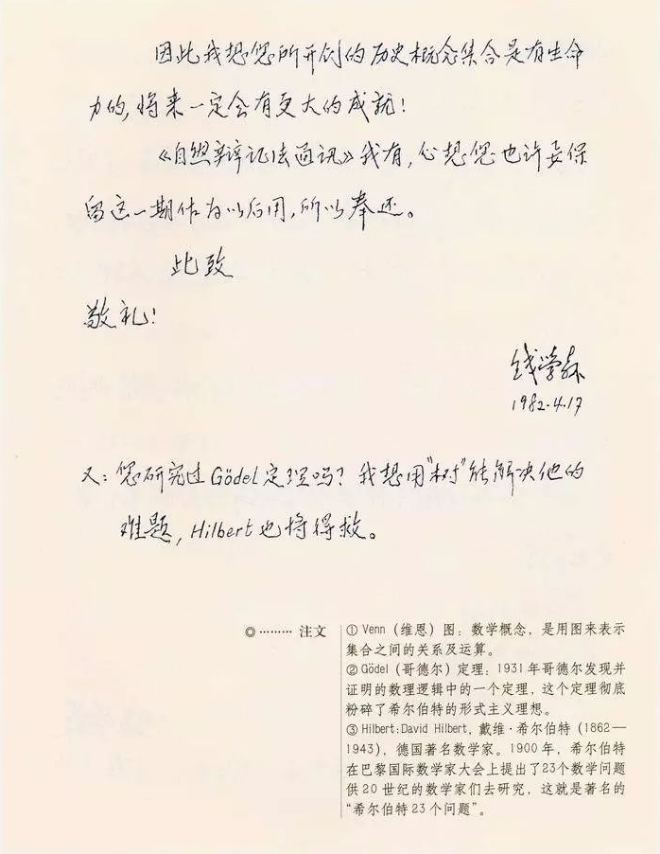 因此我想您所开创的历史概念集合是有生命
力的，将来一定会有更大的成就！
《自然辩证法通讯》我有，心想您也许要保
留这一期作为以后用，所以奉还。
此致
敬礼！
钱学森
1982.4.17
又：您研究过Gödel定理吗？我想用“树”能解决他的
难题，Hilbert也将得救。
◎⋯⋯⋯ 注文
① Venn（维恩）图：数学概念，是用图来表示
集合之间的关系及运算。
② Gödel（哥德尔）定理：1931年哥德尔发现并
证明的数理逻辑中的一个定理，这个定理彻底
粉碎了希尔伯特的形式主义理想。
③ Hilbert:David Hilbert，戴维·希尔伯特（1862—
1943），德国著名数学家。1900年，希尔伯特
在巴黎国际数学家大会上提出了23个数学问题
供20世纪的数学家们去研究，这就是著名的
“希尔伯特23个问题”。